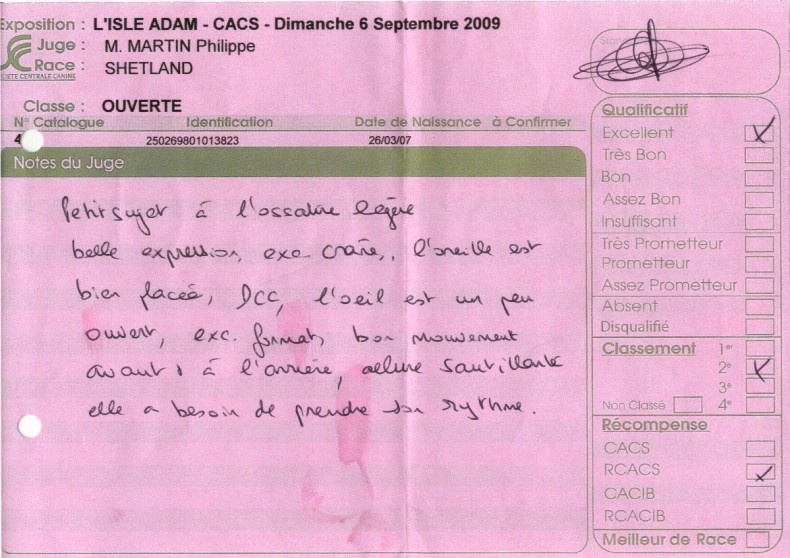 Exposition : L'ISLE ADAM - CACS - Dimanche 6 Septembre 2009
Juge : M. MARTIN Philippe
Race : SHETLAND
SOCIETE CENTRALE CANINE
Classe : OUVERTE
N° Catalogue Identification Date de Naissance à Confirmer
4 250269801013823 26/03/07
Notes du Juge
Petit sujet à l'ossature légère
belle expression, exc crâne, l'oreille est
bien placée, DCC, l'oeil est un peu
ouvert, exc. format, bon mouvement
avant à l'arrière, allure sautillante
elle a besoin de prendre son rythme.
Qualificatif
Excellent X
Très Bon
Bon
Assez Bon
Insuffisant
Très Prometteur
Prometteur
Assez Prometteur
Absent
Disqualifié
Classement 1er
2e X
3e
Non Classé 4e
Récompense
CACS
RCACS
CACIB
RCACIB
Meilleur de Race